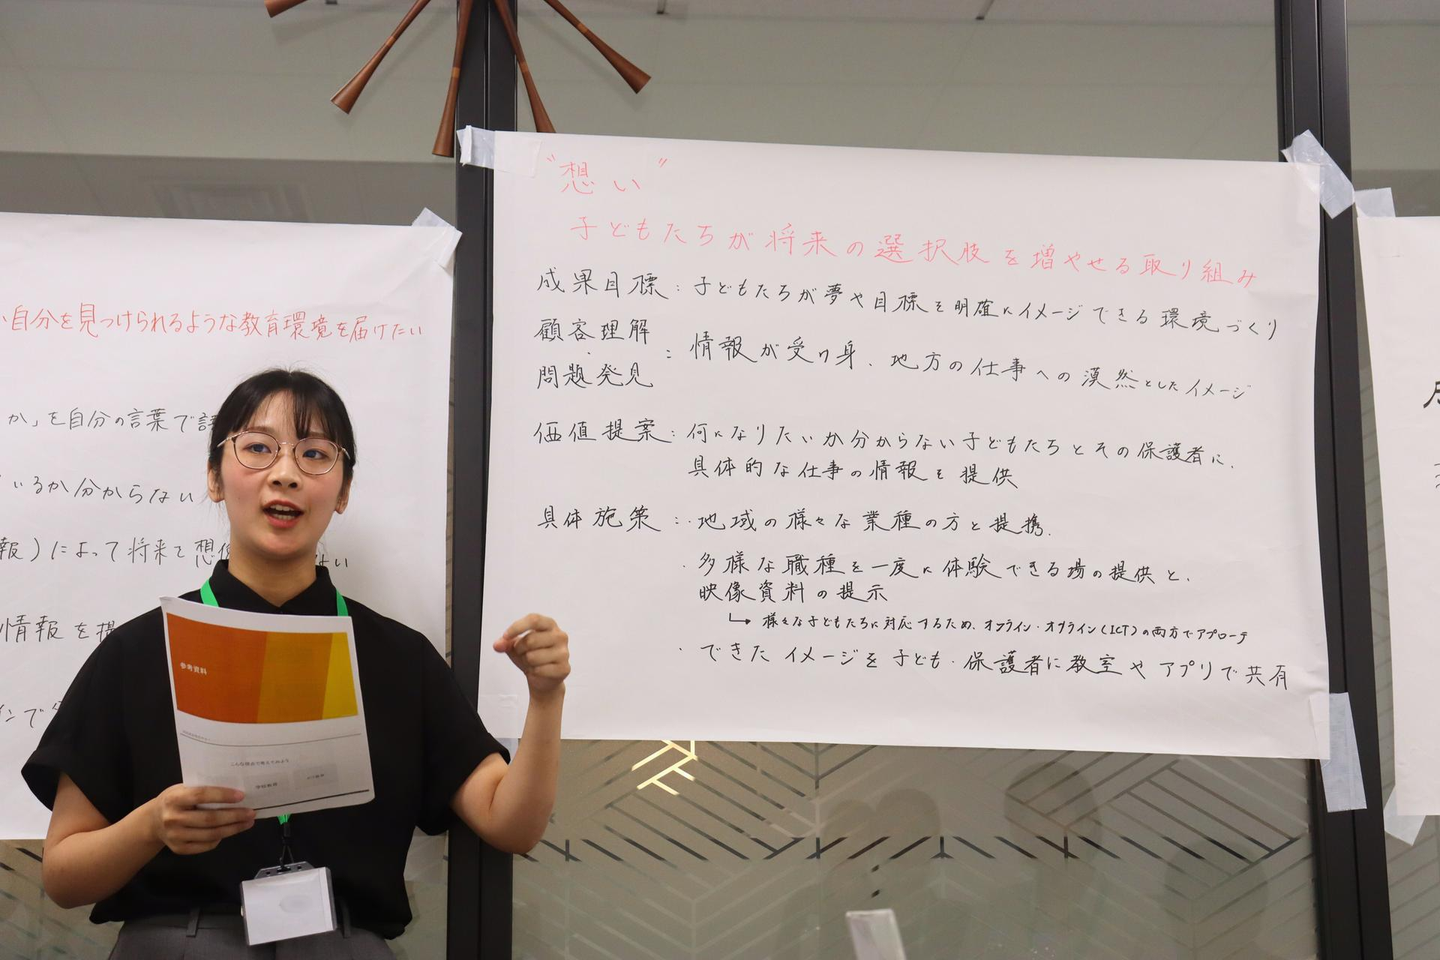 自分を見つけられるような教育環境を届けたい
か」を自分の言葉で
いるか分からない
報)によって将来を想
情報を提
"想い"
子どもたちが将来の選択肢を増やせる取り組み
成果目標:子どもたちが夢や目標を明確にイメージできる環境づくり
顧客理解
問題発見
:情報が受け身、地方の仕事への漠然としたイメージ
価値提案:何になりたいか分からない子どもたちとその保護者に、
具体的な仕事の情報を提供
具体施策:・地域の様々な業種の方と提携、
・多様な職種を一度に体験できる場の提供と、
映像資料の提示
↳様々な子どもたちに対応するため、オンライン・オフライン(ICT)の両方でアプローチ
・できたイメージを子ども・保護者に教室やアプリで共有
参考資料